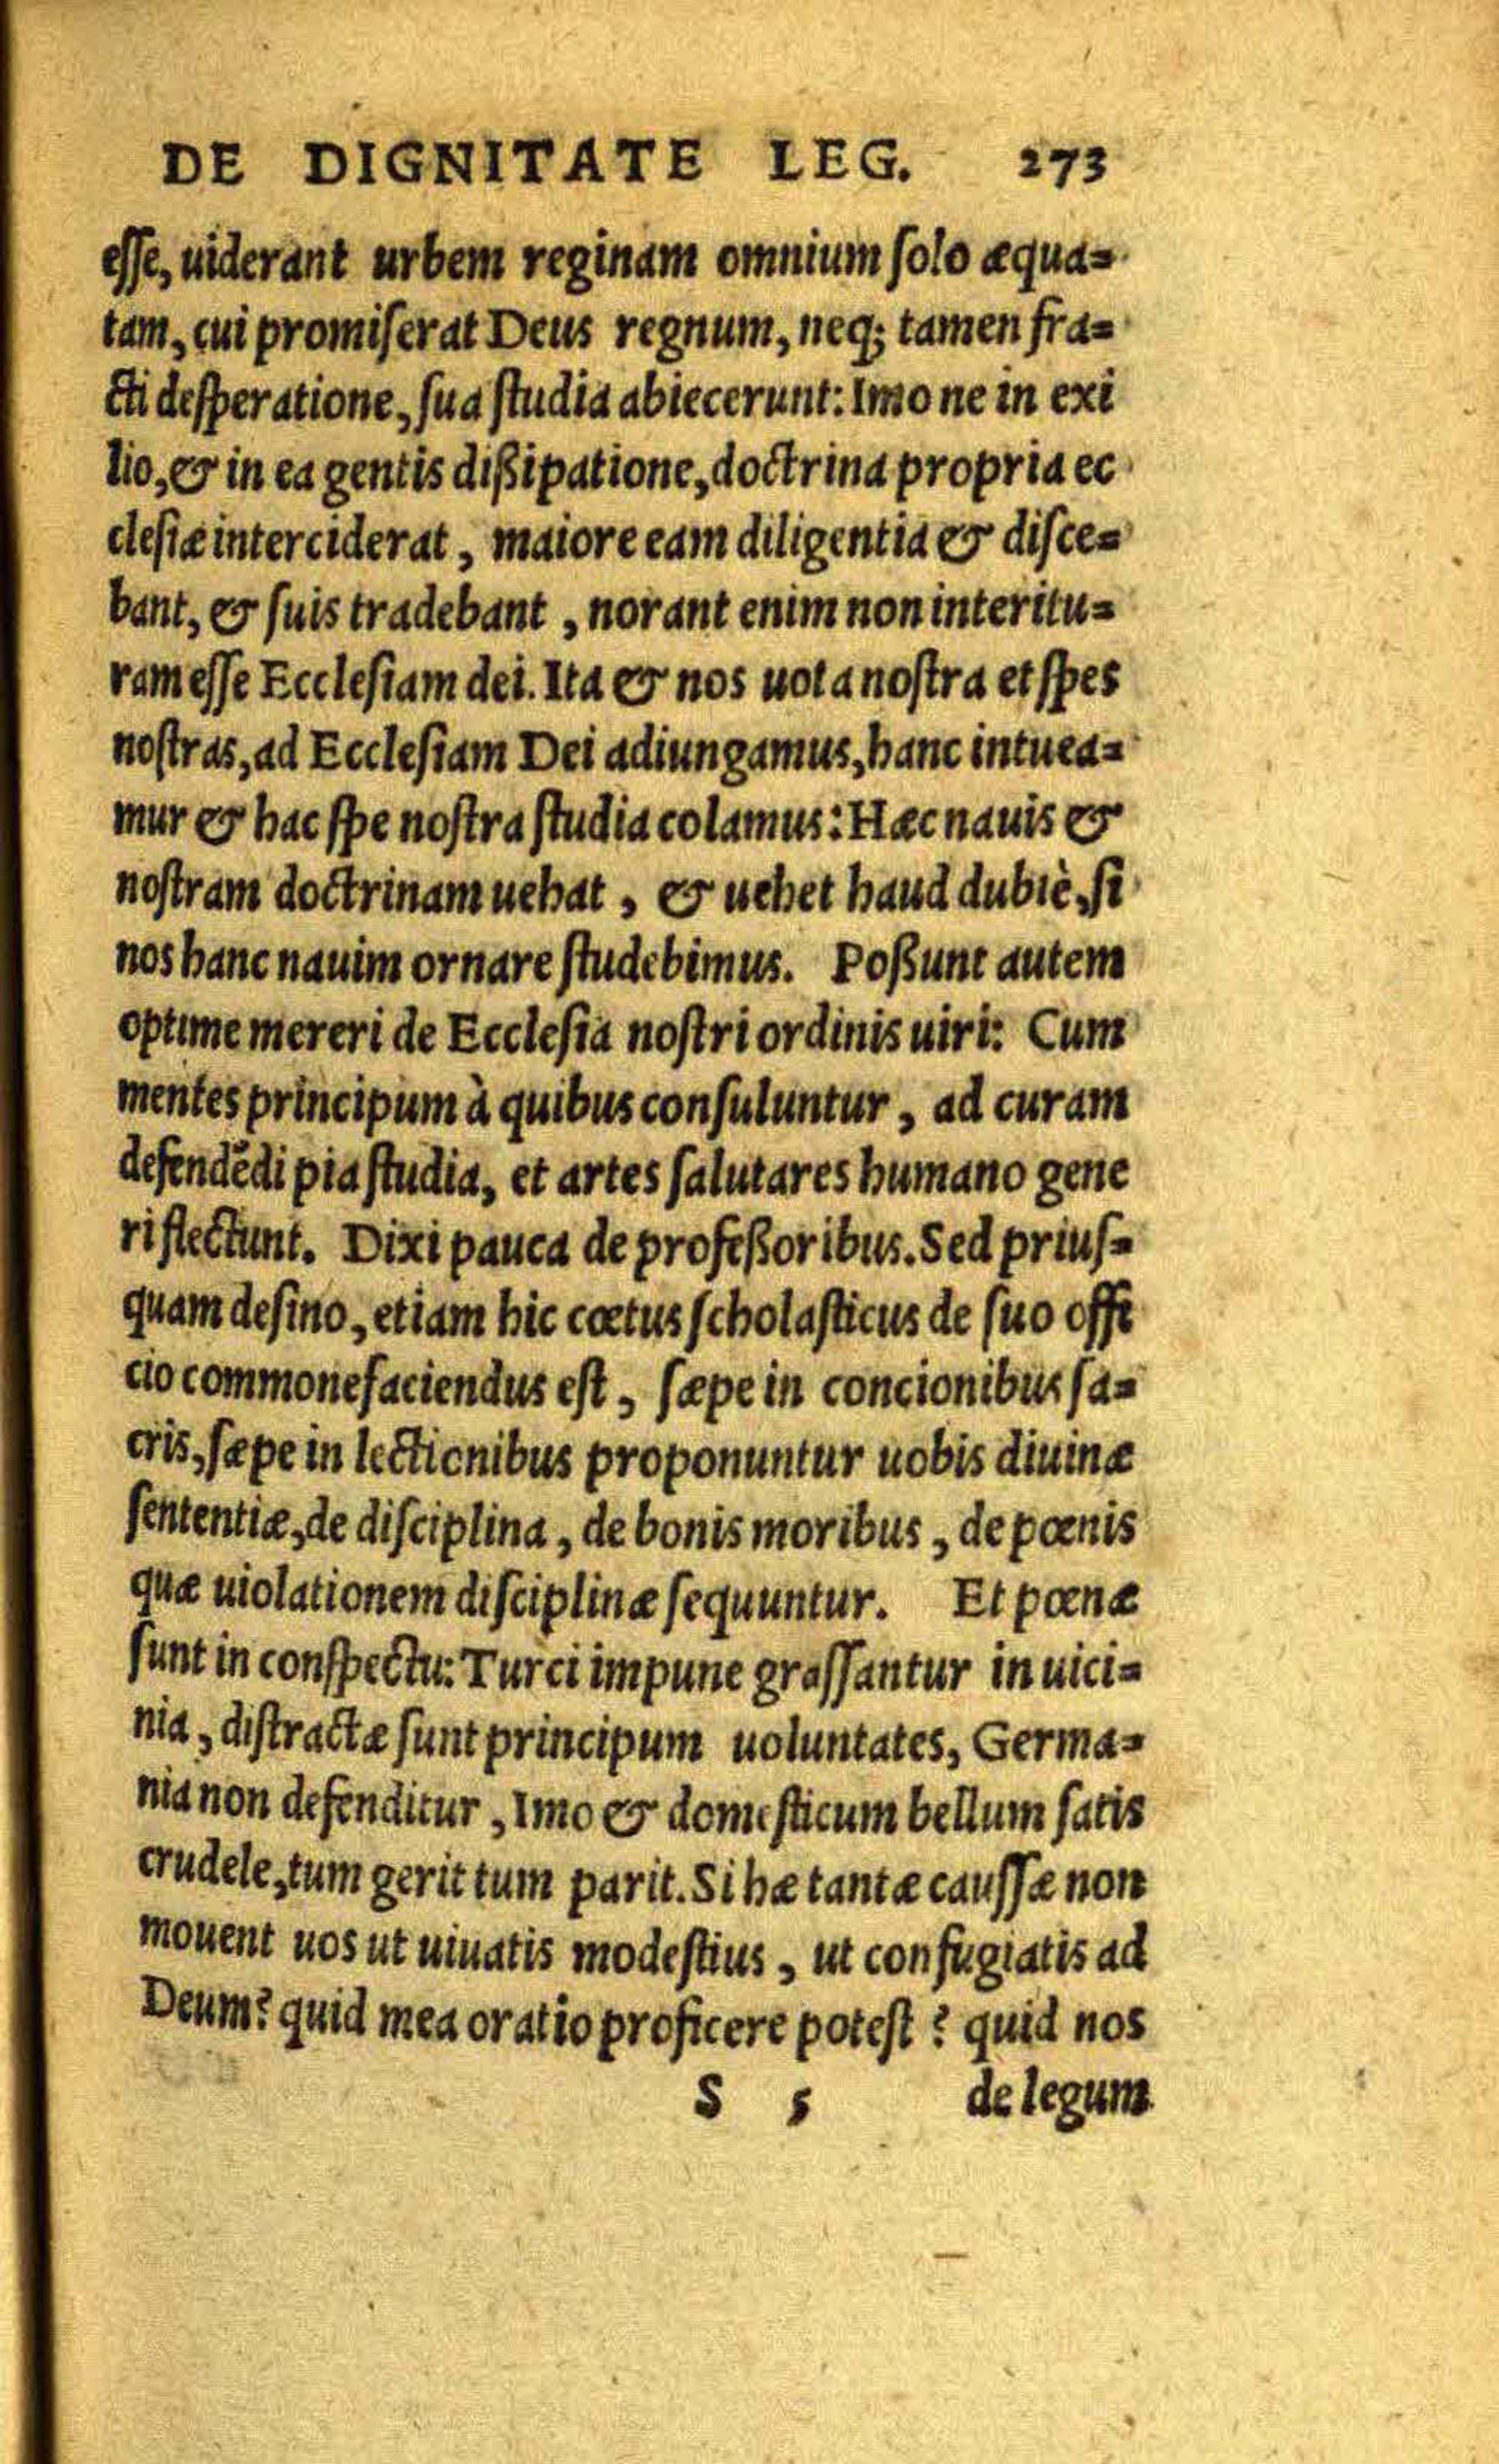 DE DIGNITATE LEG. 273
esse, uiderant urbem reginam omnium solo æqua=
tam, cui promiserat Deus regnum, neq; tamen fra=
cti desperatione, sua studia abiecerunt: Imo ne in exi
lio, & in ea gentis dißipatione, doctrina propria ec
clesiæ interciderat, maiore eam diligentia & disce=
bant, & suis tradebant, norant enim non interitu=
ram esse Ecclesiam dei. Ita & nos uota nostra et spes
nostras, ad Ecclesiam Dei adiungamus, hanc intuea=
mur & hac spe nostra studia colamus: Hæc nauis &
nostram doctrinam uehat, & uehet haud dubiè, si
nos hanc nauim ornare studebimus. Poßunt autem
optime mereri de Ecclesia nostri ordinis uiri: Cum
mentes principum à quibus consuluntur, ad curam
defendẽdi pia studia, et artes salutares humano gene
ri flectunt. Dixi pauca de profeßoribus. Sed prius=
quam desino, etiam hic cœtus scholasticus de suo offi
cio commonefaciendus est, sæpe in concionibus sa=
cris, sæpe in lectionibus proponuntur uobis diuinæ
sententiæ, de disciplina, de bonis moribus, de pœnis
quæ uiolationem disciplinæ sequuntur. Et pœnæ
sunt in conspectu: Turci impune grassantur in uici=
nia, distractæ sunt principum uoluntates, Germa=
nia non defenditur, Imo & domesticum bellum satis
crudele, tum gerit tum parit. Si hæ tantæ caussæ non
mouent uos ut uiuatis modestius, ut confugiatis ad
Deum? quid mea oratio proficere potest? quid nos
S 5 de legum